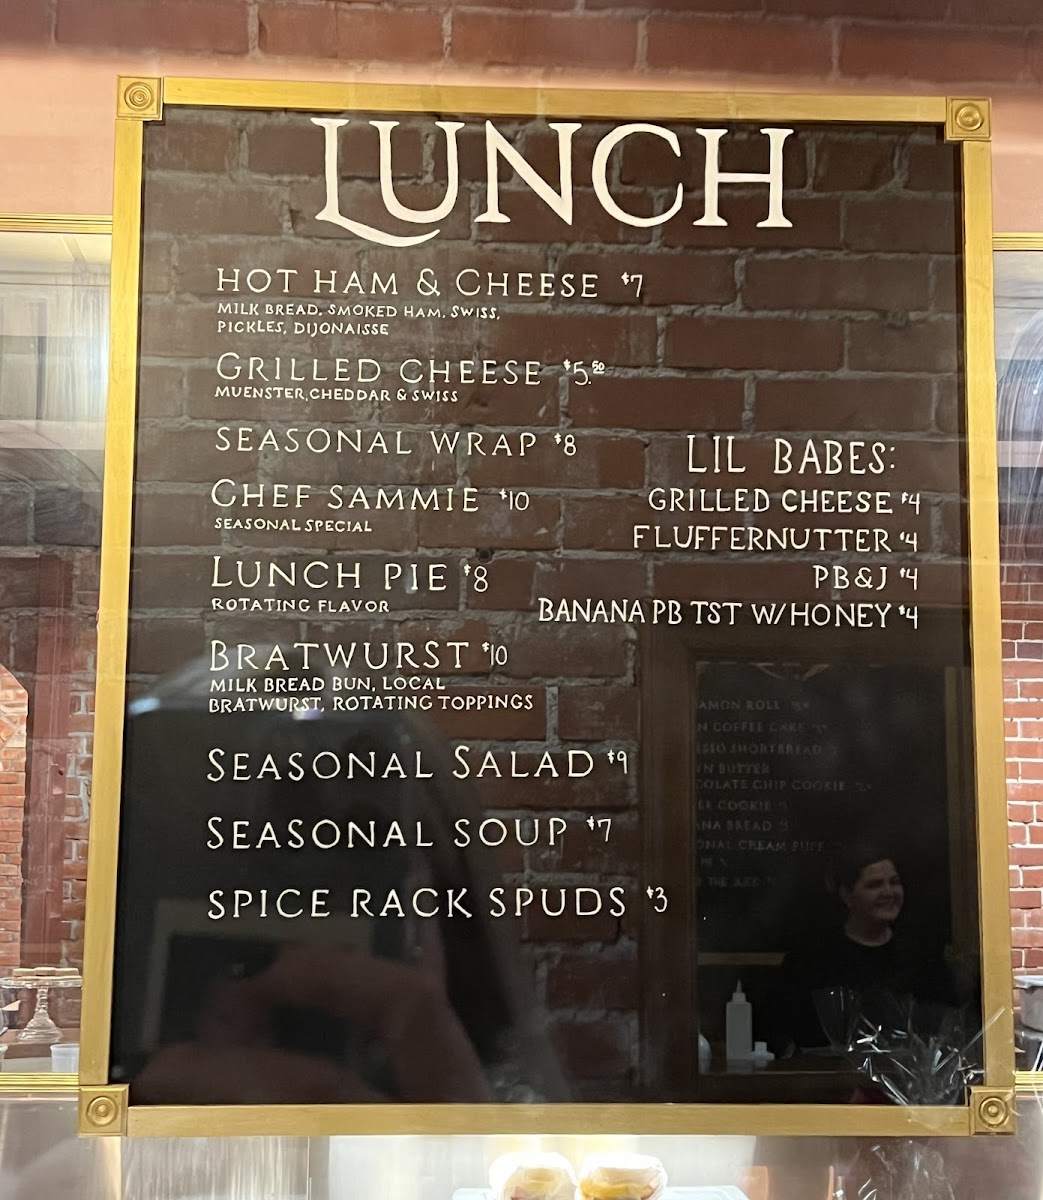 LUNCH
HOT HAM & CHEESE $7
MILK BREAD, SMOKED HAM, SWISS,
PICKLES, DIJONAISSE
GRILLED CHEESE $5.50
MUENSTER, CHEDDAR & SWISS
SEASONAL WRAP $8
CHEF SAMMIE $10
SEASONAL SPECIAL
LUNCH PIE $8
ROTATING FLAVOR
BRATWURST $10
MILK BREAD BUN, LOCAL
BRATWURST, ROTATING TOPPINGS
SEASONAL SALAD $9
SEASONAL SOUP $7
SPICE RACK SPUDS $3
LIL BABES:
GRILLED CHEESE $4
FLUFFERNUTTER $4
PB&J $4
BANANA PB TST W/HONEY $4
ROLL
COFFEE CAKE
SHORTBREAD
BUTTER
CHIP COOKIE
COOKIE
BREAD
CREAM PUFF